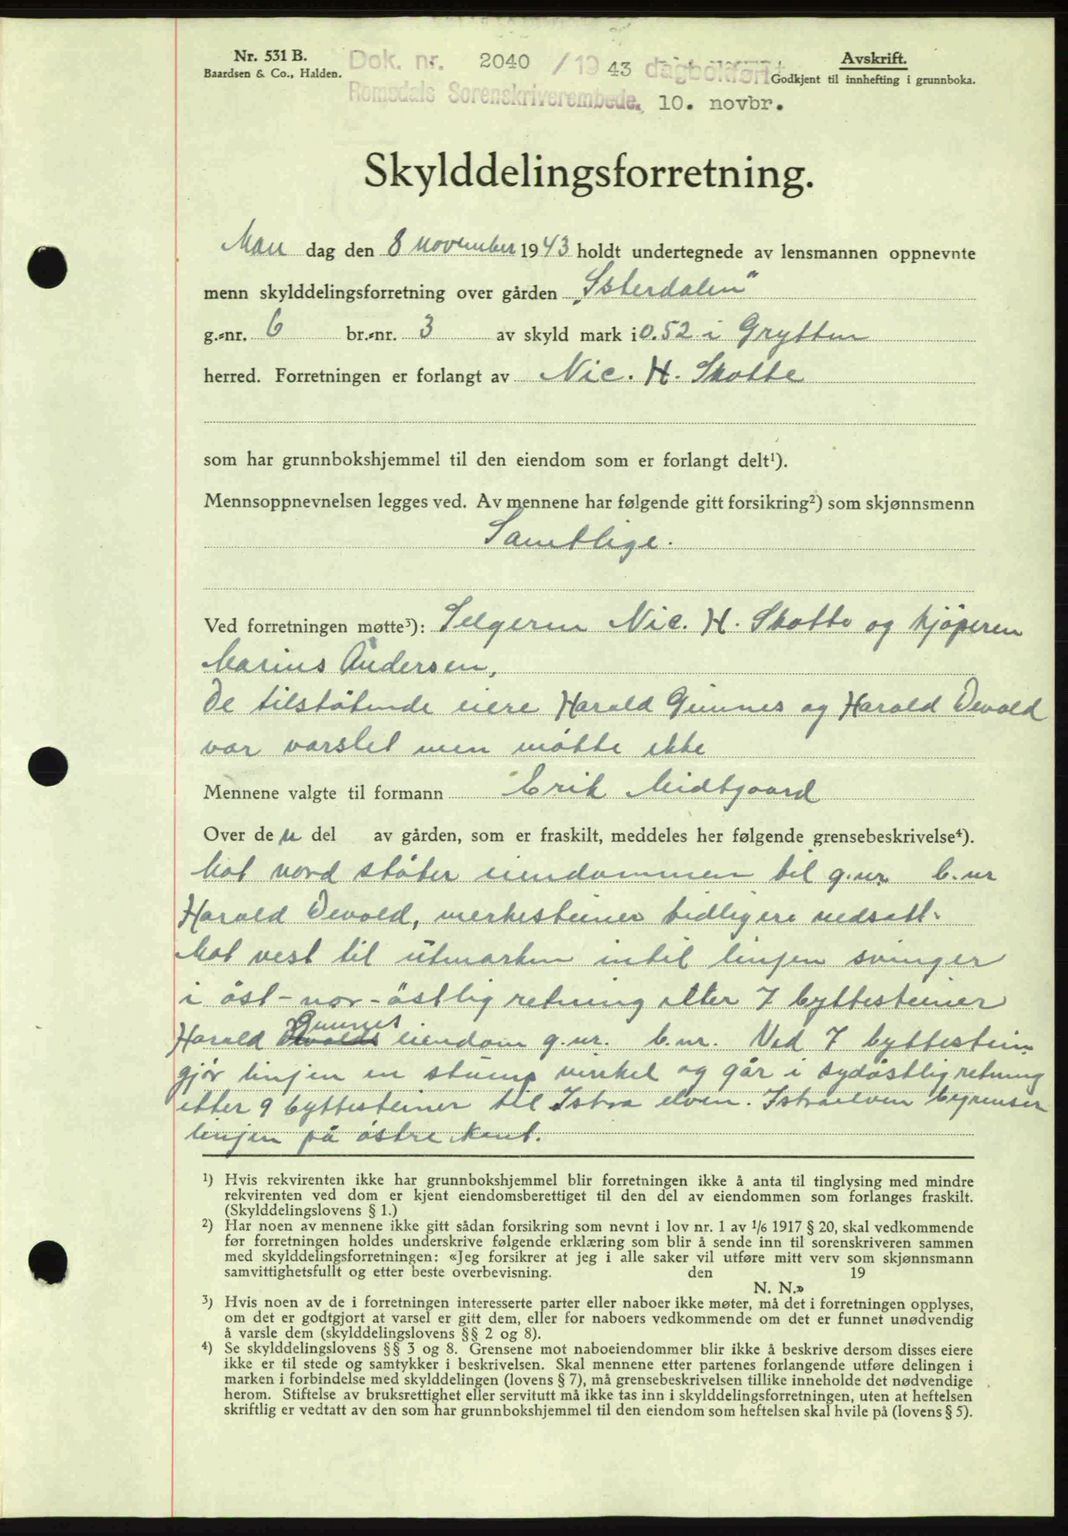 Nr. 531 B.
Baardsen & Co., Halden.
Dok. nr. 2040 / 1943 dagbokført
Romsdals Sorenskriverembede. 10. novbr.
Avskrift.
Godkjent til innhefting i grunnboka.
Skylddelingsforretning.
Man dag den 8 november 1943 holdt undertegnede av lensmannen oppnevnte
menn skylddelingsforretning over gården „Isterdalen"
g.-nr. 6 br.-nr. 3 av skyld mark i 0.52 i Grytten
herred. Forretningen er forlangt av Nic. H. Skotte
som har grunnbokshjemmel til den eiendom som er forlangt delt¹).
Mennsoppnevnelsen legges ved. Av mennene har følgende gitt forsikring²) som skjønnsmenn
Samtlige.
Ved forretningen møtte³): Selgeren Nic. H. Skotte og kjöperen
Marius Andersen,
De tilstötende eiere Harald Gunnes og Harald Devold
var varslet men mötte ikke
Mennene valgte til formann Erik Midtgaard
Over den del av gården, som er fraskilt, meddeles her følgende grensebeskrivelse⁴).
Mot nord stöter eiendommen til g.nr. b.nr
Harald Devold, merkesteiner tidligere nedsatt.
Mot vest til utmarken intil linjen svinger
i öst-nor-östlig retning etter 7 byttesteiner
Harald Devolds Gunnes eiendom g.nr. b.nr. Ved 7 byttestein
gjör linjen en stump vinkel og går i sydöstlig retning
etter 9 byttesteiner til Istra elven. Istraelven begrenser
linjen på östre kant.
¹) Hvis rekvirenten ikke har grunnbokshjemmel blir forretningen ikke å anta til tinglysing med mindre
rekvirenten ved dom er kjent eiendomsberettiget til den del av eiendommen som forlanges fraskilt.
(Skylddelingslovens § 1.)
²) Har noen av mennene ikke gitt sådan forsikring som nevnt i lov nr. 1 av 1/6 1917 § 20, skal vedkommende
før forretningen holdes underskrive følgende erklæring som blir å sende inn til sorenskriveren sammen
med skylddelingsforretningen: «Jeg forsikrer at jeg i alle saker vil utføre mitt verv som skjønnsmann
samvittighetsfullt og etter beste overbevisning. den 19
N. N.»
³) Hvis noen av de i forretningen interesserte parter eller naboer ikke møter, må det i forretningen opplyses,
om det er godtgjort at varsel er gitt dem, eller for naboers vedkommende om det er funnet unødvendig
å varsle dem (skylddelingslovens §§ 2 og 8).
⁴) Se skylddelingslovens §§ 3 og 8. Grensene mot naboeiendommer blir ikke å beskrive dersom disses eiere
ikke er til stede og samtykker i beskrivelsen. Skal mennene etter partenes forlangende utføre delingen i
marken i forbindelse med skylddelingen (lovens § 7), må grensebeskrivelsen tillike inneholde det nødvendige
herom. Stiftelse av bruksrettighet eller servitutt må ikke tas inn i skylddelingsforretningen, uten at heftelsen
skriftlig er vedtatt av den som har grunnbokshjemmel til den eiendom som heftelsen skal hvile på (lovens § 5).